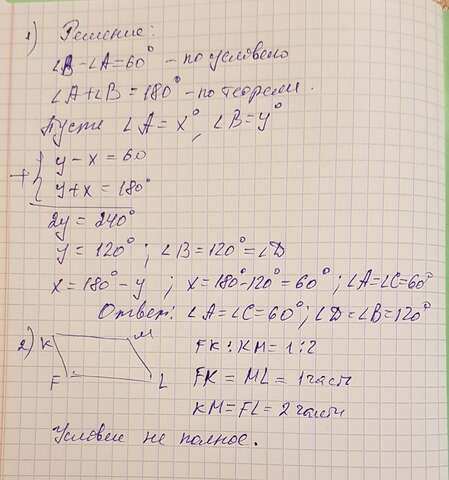 1) Решение:
∠B-∠A=60° - по условию
∠A+∠B=180° - по теореме.
Пусть ∠A=x°, ∠B=y°
y-x=60
+
y+x=180°
2y=240°
y=120°; ∠B=120°=∠D
x=180°-y; x=180°-120°=60°; ∠A=∠C=60°
Ответ: ∠A=∠C=60°; ∠D=∠B=120°
2) K M
FK:KM=1:2
F L
FK=ML=1часть
KM=FL=2части
Условие не полное.